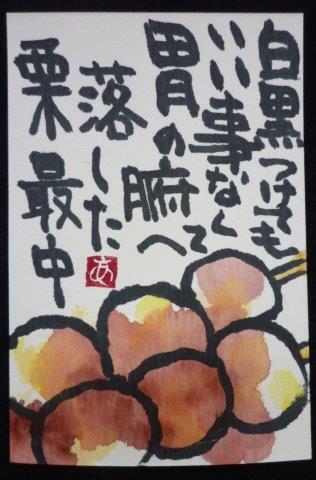 白黒つけても
いい事なくて
胃の腑へ
落した
栗最中
あ